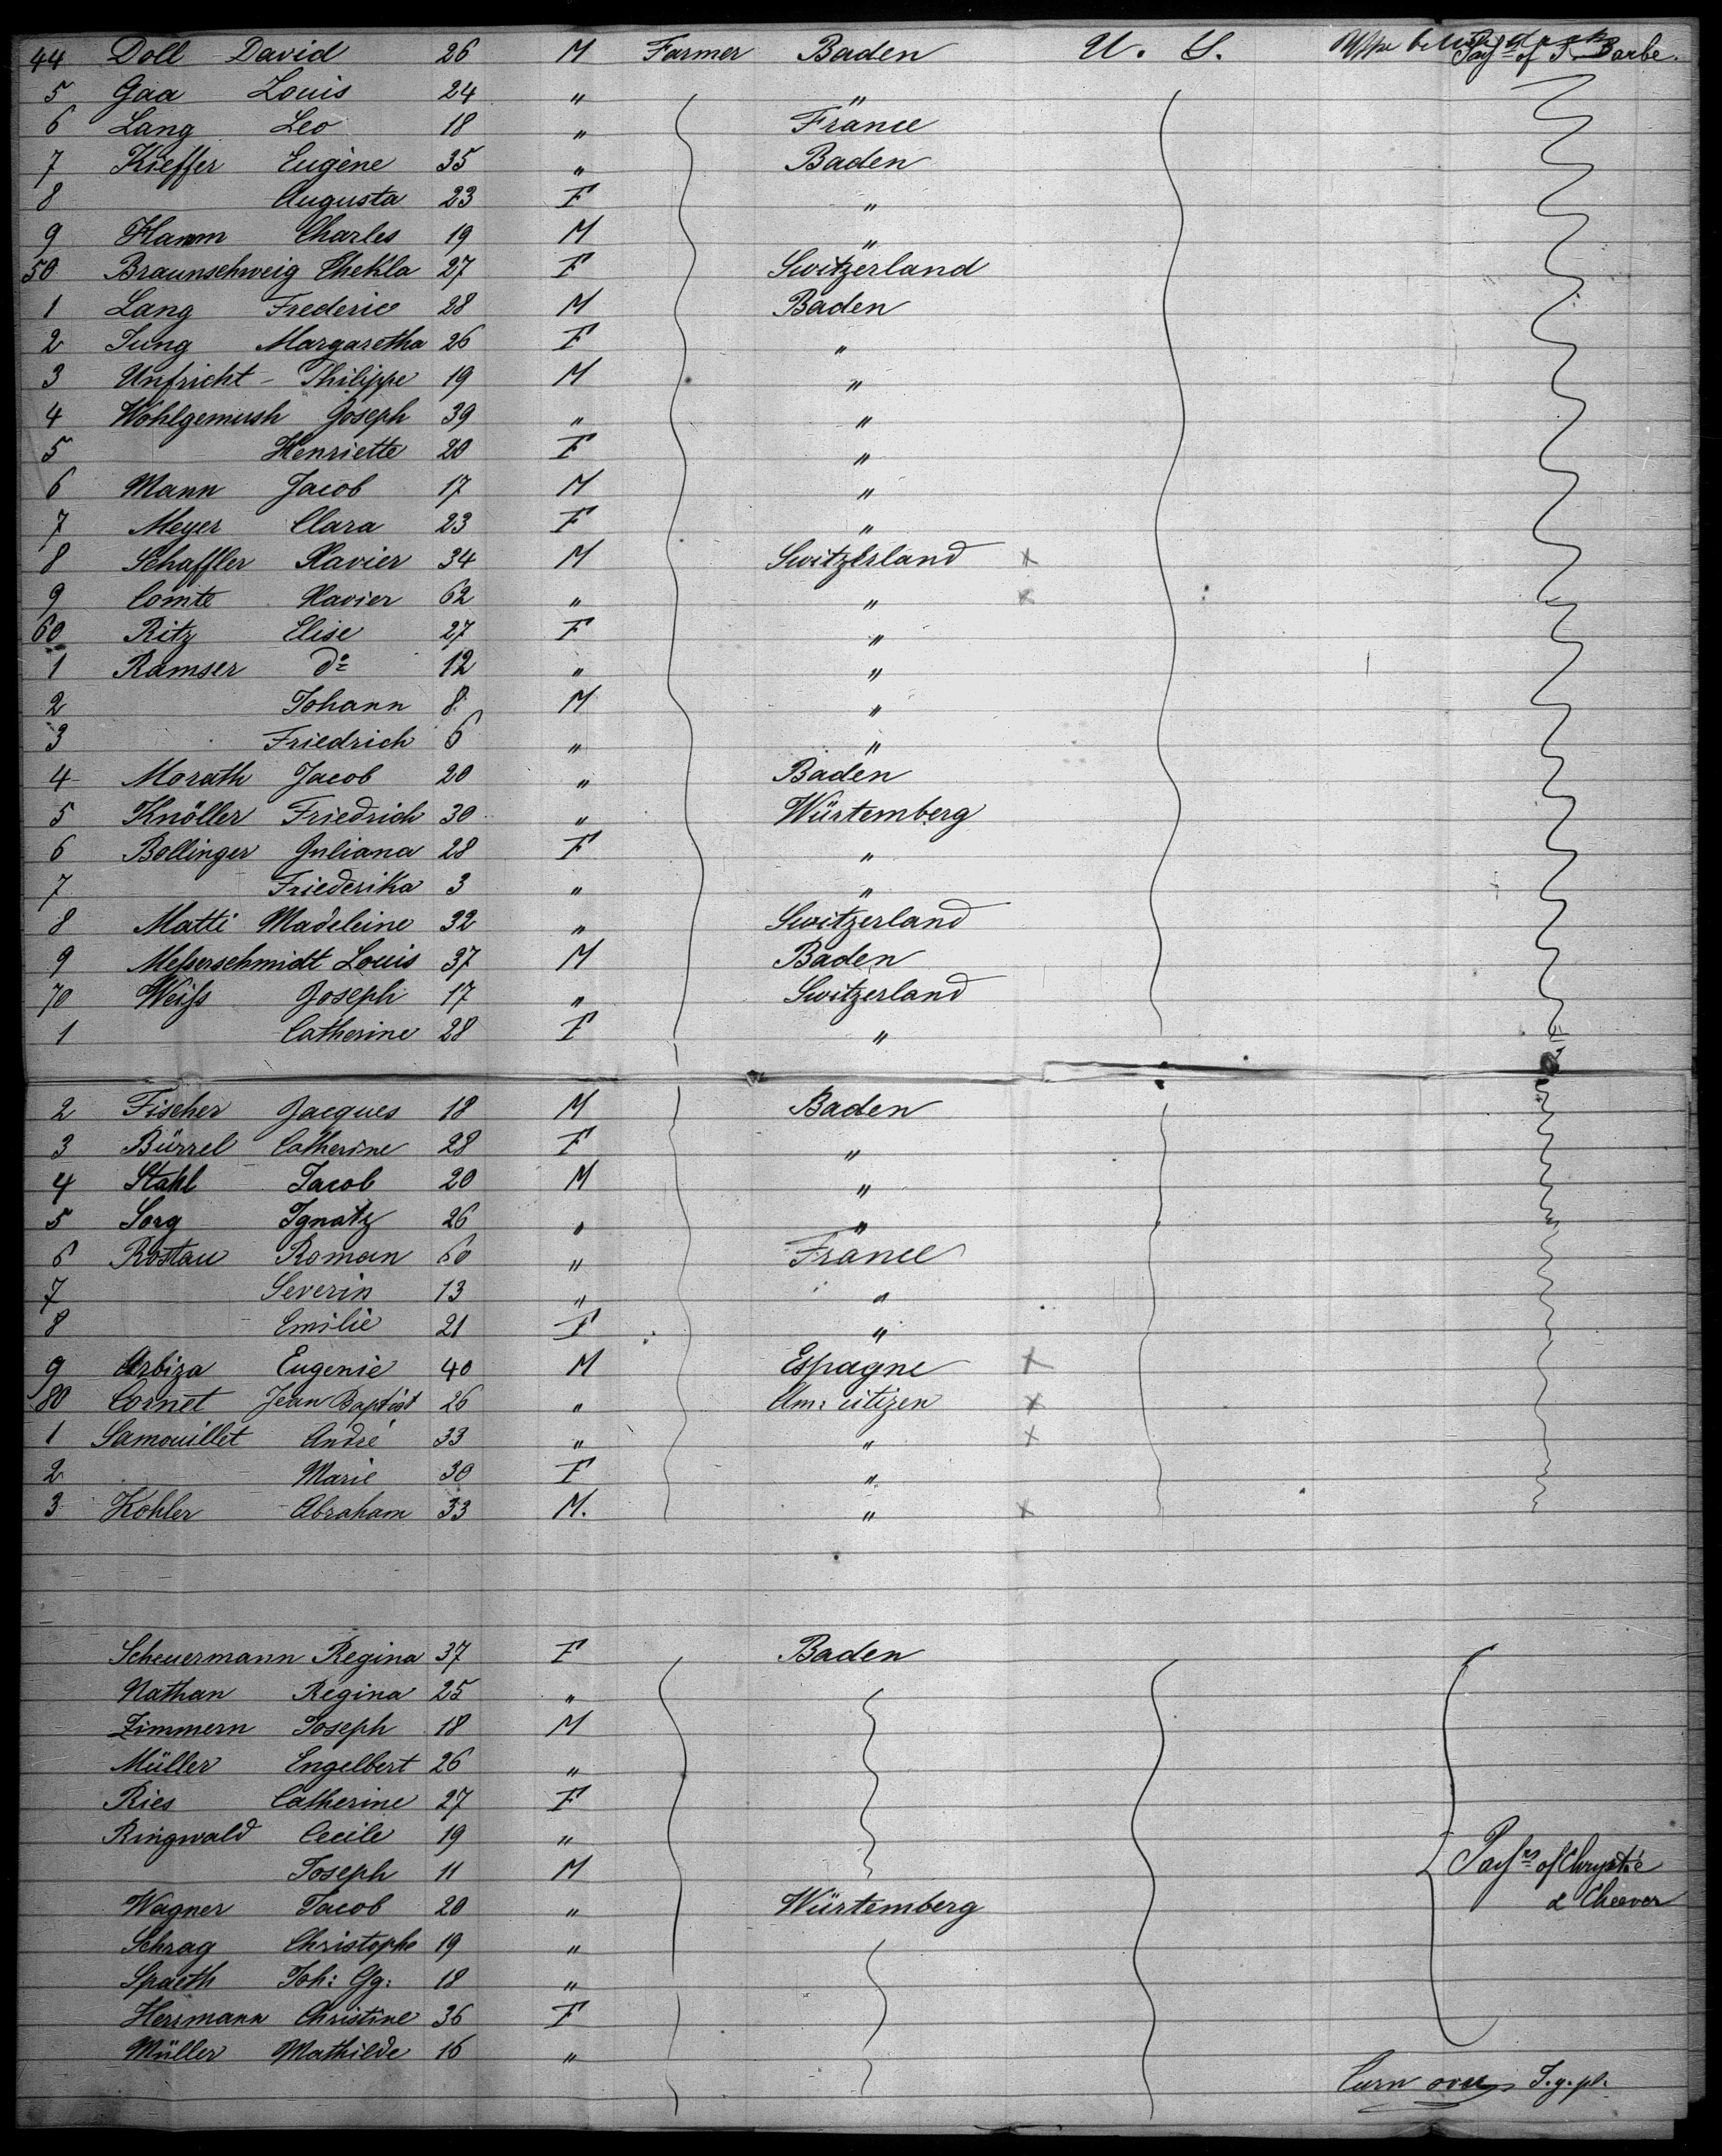 44 Doll David 26 M Farmer Baden U. S. Pasgs of J. Barbe.
5 Gaa Louis 24 " "
6 Lang Leo 18 " France
7 Kieffer Eugène 35 " Baden
8 Augusta 23 F "
9 Hamm Charles 19 M "
50 Braunschweig Thekla 27 F Switzerland
1 Lang Frederic 28 M Baden
2 Jung Margaretha 26 F "
3 Unfricht - Philippe 19 M "
4 Wohlgemush Joseph 39 " "
5 Henriette 20 F "
6 Mann Jacob 17 M "
7 Meyer Clara 23 F "
8 Schaffler Xavier 34 M Switzerland x
9 Comte Xavier 62 " " x
60 Ritz Elise 27 F "
1 Ramser do 12 " "
2 Johann 8 M "
3 Friedrich 6 " "
4 Morath Jacob 20 " Baden
5 Knöller Friedrich 30 " Würtemberg
6 Bollinger Juliana 28 F "
7 Friederika 3 " "
8 Matti Madeleine 32 " Switzerland
9 Messerschmidt Louis 37 M Baden
70 Weiss Joseph 17 " Switzerland
1 Catherine 28 F "
2 Fischer Jacques 18 M Baden
3 Bürrel Catherine 28 F "
4 Stahl Jacob 20 M "
5 Sorg Ignatz 26 " "
6 Rostau Roman 60 " France
7 Severin 13 " "
8 Emilie 21 F "
9 Arbiza Eugenie 40 M Espagne x
80 Cornet Jean Baptist 26 " Am: citizen x
1 Samouillet André 33 " " x
2 Marie 30 F "
3 Kohler Abraham 33 M. " x
Scheuermann Regina 37 F Baden
Nathan Regina 25 "
Zimmern Joseph 18 M
Müller Engelbert 26 "
Ries Catherine 27 F
Ringwald Cecile 19 "
Joseph 11 M Pasgs of Chrystie
Wagner Jacob 20 " Würtemberg & Cheever
Schrag Christophe 19 "
Spaeth Joh: Gg: 18 "
Herrmann Christine 36 F
Müller Mathilde 16 "
Turn over